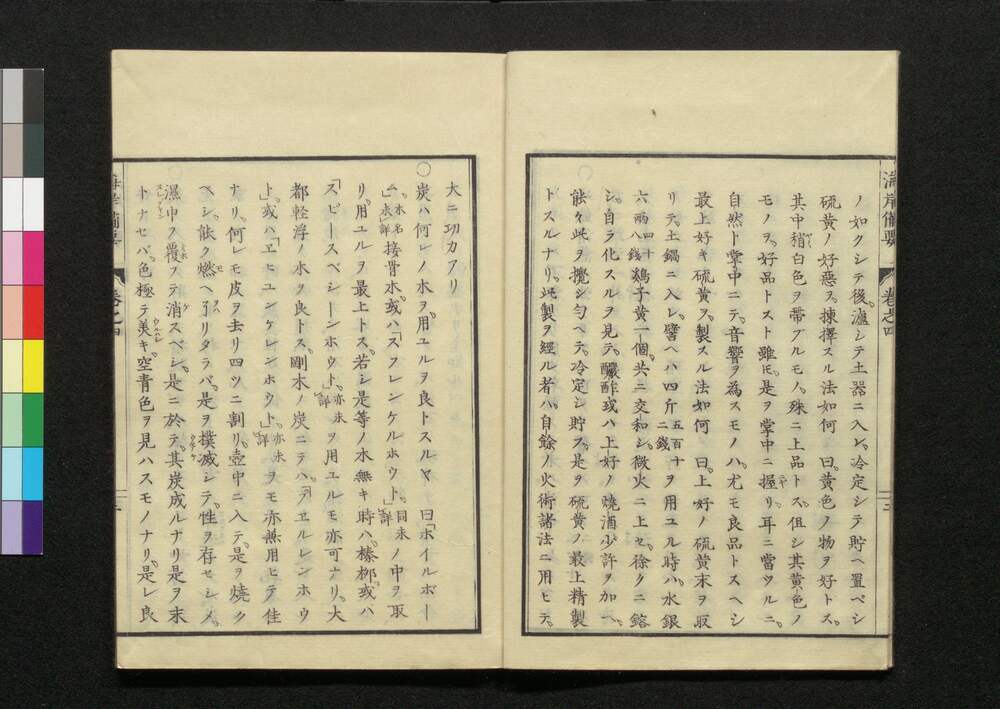 ノ如クシテ後。濾シテ土器ニ入レ。冷定シテ貯ヘ置ベシ
硫黄ノ好惡ヲ。揀擇スル法如何 曰。黄色ノ物ヲ好トス。
其中稍白色ヲ帶ブルモノ。殊ニ上品トス。伹シ其黄色ノ
モノヲ。好品トスト雖𪜈。是ヲ掌中ニ握リ。耳ニ當ツルニ。
自然ト掌中ニテ。音響ヲ為スモノハ。尤モ良品トスヘシ
最上好キ硫黄ヲ。製スル法如何 曰。上好ノ硫黄末ヲ取
リテ。土鍋ニ入レ。譬ヘハ四斤五百十二錢ヲ用ユル時ハ。水銀
六兩四十八錢鷄子黄一個。共ニ交和シ。微火ニ上セ。徐クニ鎔
シ。自ラ化スルヲ見テ。釅酢或ハ上好ノ燒酒少許ヲ加ヘ。
能々此ヲ攪シ勻ヘテ。冷定シ貯ス。是ヲ硫黄ノ最上精製
トスルナリ。此製ヲ經ル者ハ。自餘ノ火術諸法ニ用ヒテ。
海岸備要
卷之四
大ニ功力アリ
○炭ハ何レノ木ヲ。用ユルヲ良トスルヤ 曰「ホイルボー
ム」木名未レ詳接骨木。或ハ「スフレンケルホウト」同未レ詳ノ中ヲ取
リ。用ユルヲ最上トス。若シ是等ノ木無キ時ハ。榛栁。或ハ
「スピースベシーンホウト」亦未レ詳ヲ用ユルモ亦可ナリ。大
都輕浮ノ木ヲ良トス。剛木ノ炭ニテハ。「ヱルレンホウ
ト」或ハ「ヱヒユンケレンホウト」亦未レ詳ヲモ亦無用ヒテ佳
ナリ。何レモ皮ヲ去リ四ツニ割リ。壺中ニ入テ。是ヲ燒ク
ベシ。能ク燃ヘ了リタラバ。是ヲ撲滅シテ。性ヲ存セシメ。
濕巾ヲ覆ヲテ消スベシ。是ニ於テ。其炭成ルナリ是ヲ末
トナセバ。色極テ美キ。空青色ヲ見ハスモノナリ。是レ良
海岸備要
卷之四